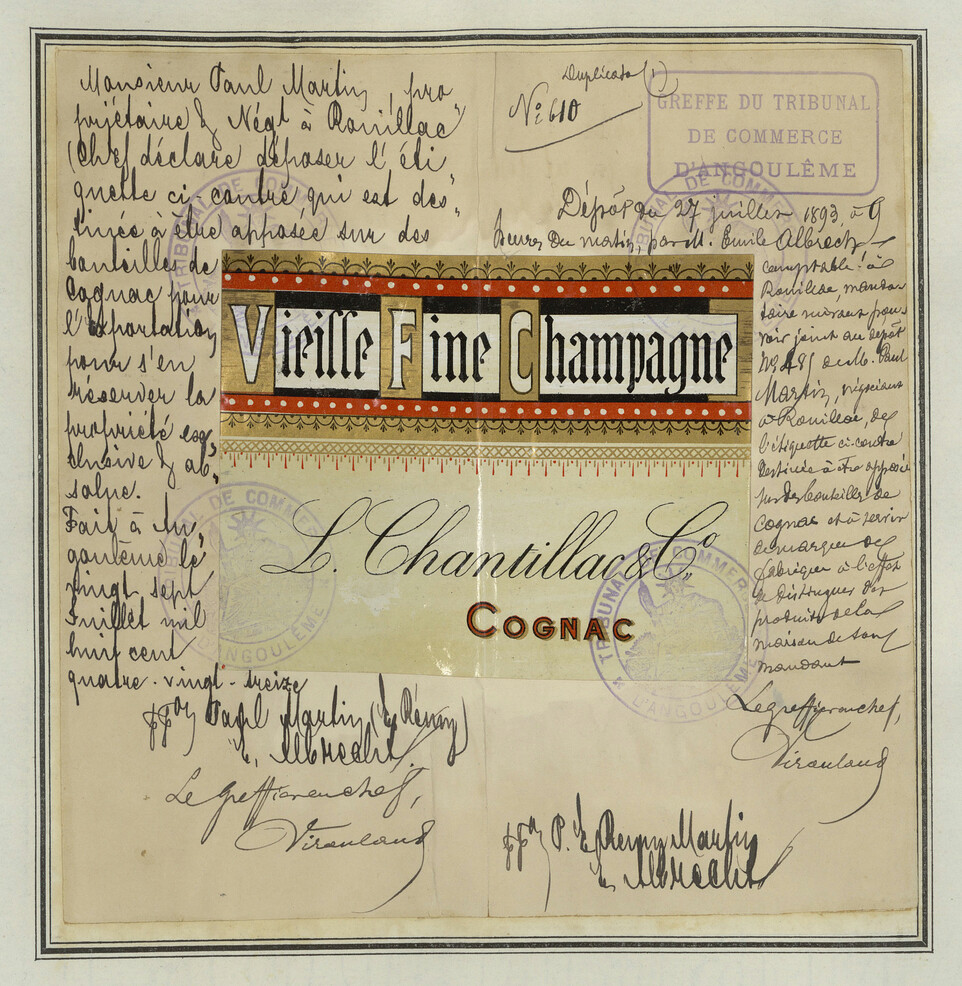 Monsieur Paul Martin, pro
priétaire & Négt à Rouillac
(Chef déclare déposer l'éti
quette ci contre qui est des
tinée à être apposée sur des
bouteilles de
Cognac pour
l'exportation
pour s'en
réserver la
propriété ex
clusive & ab
solue.
Fait à An
goulême le
vingt sept
Juillet mil
huit cent
quatre-vingt-treize
Paul Martin (E. Rémy)
E. Albrecht
Le Greffier en chef,
Duplicata (1)
No: 610
GREFFE DU TRIBUNAL
DE COMMERCE
D'ANGOULÊME
Dépôt du 27 juillet 1893 à 9
heures du matin, par M. Emile Albrecht
comptable à
Rouillac, manda
taire suivant pou
voir joint au dépôt
No 485 de M. Paul
Martin, négociant
à Rouillac, de
l'étiquette ci-contre
destinée à être apposée
sur des bouteilles de
Cognac et à servir
de marque de
fabrique à l'effet
de distinguer les
produits de la
maison de son
mandant
Le greffier en chef,
P. E. Rémy Martin
E. Albrecht
Vieille Fine Champagne
L. Chantillac & Co.
COGNAC
TRIBUNAL DE COMMERCE
D'ANGOULÊME
TRIBUNAL DE COMMERCE
D'ANGOULÊME
TRIBUNAL DE COMM
DE COMM